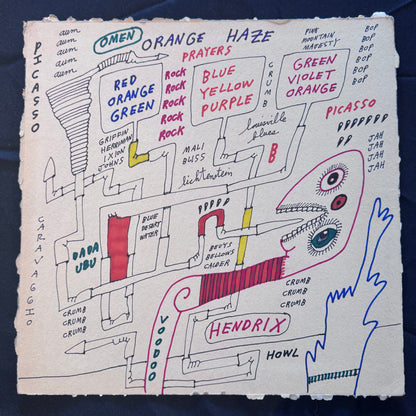 PICASSO
aum
aum
aum
aum
OMEN
ORANGE HAZE
PRAYERS
PINE
MOUNTAIN
MAJESTY
BOP
BOP
BOP
BOP
BOP
RED
ORANGE
GREEN
ROCK
ROCK
ROCK
ROCK
ROCK
BLUE
YELLOW
PURPLE
CRUMB
GREEN
VIOLET
ORANGE
PICASSO
PPPPPPP
PP
JAH
JAH
JAH
JAH
GRIFFIN
HERRIMAN
IXION
JOHNS
MALI
BLISS
lichtenstein
louisville
blues
B
CARAVAGGIO
DADA
UBU
BLUE
DESERT
WATER
PPPPP
BEUYS
BELLOWS
CALDER
CRUMB
CRUMB
CRUMB
CRUMB
CRUMB
CRUMB
VOODOO
HENDRIX
HOWL